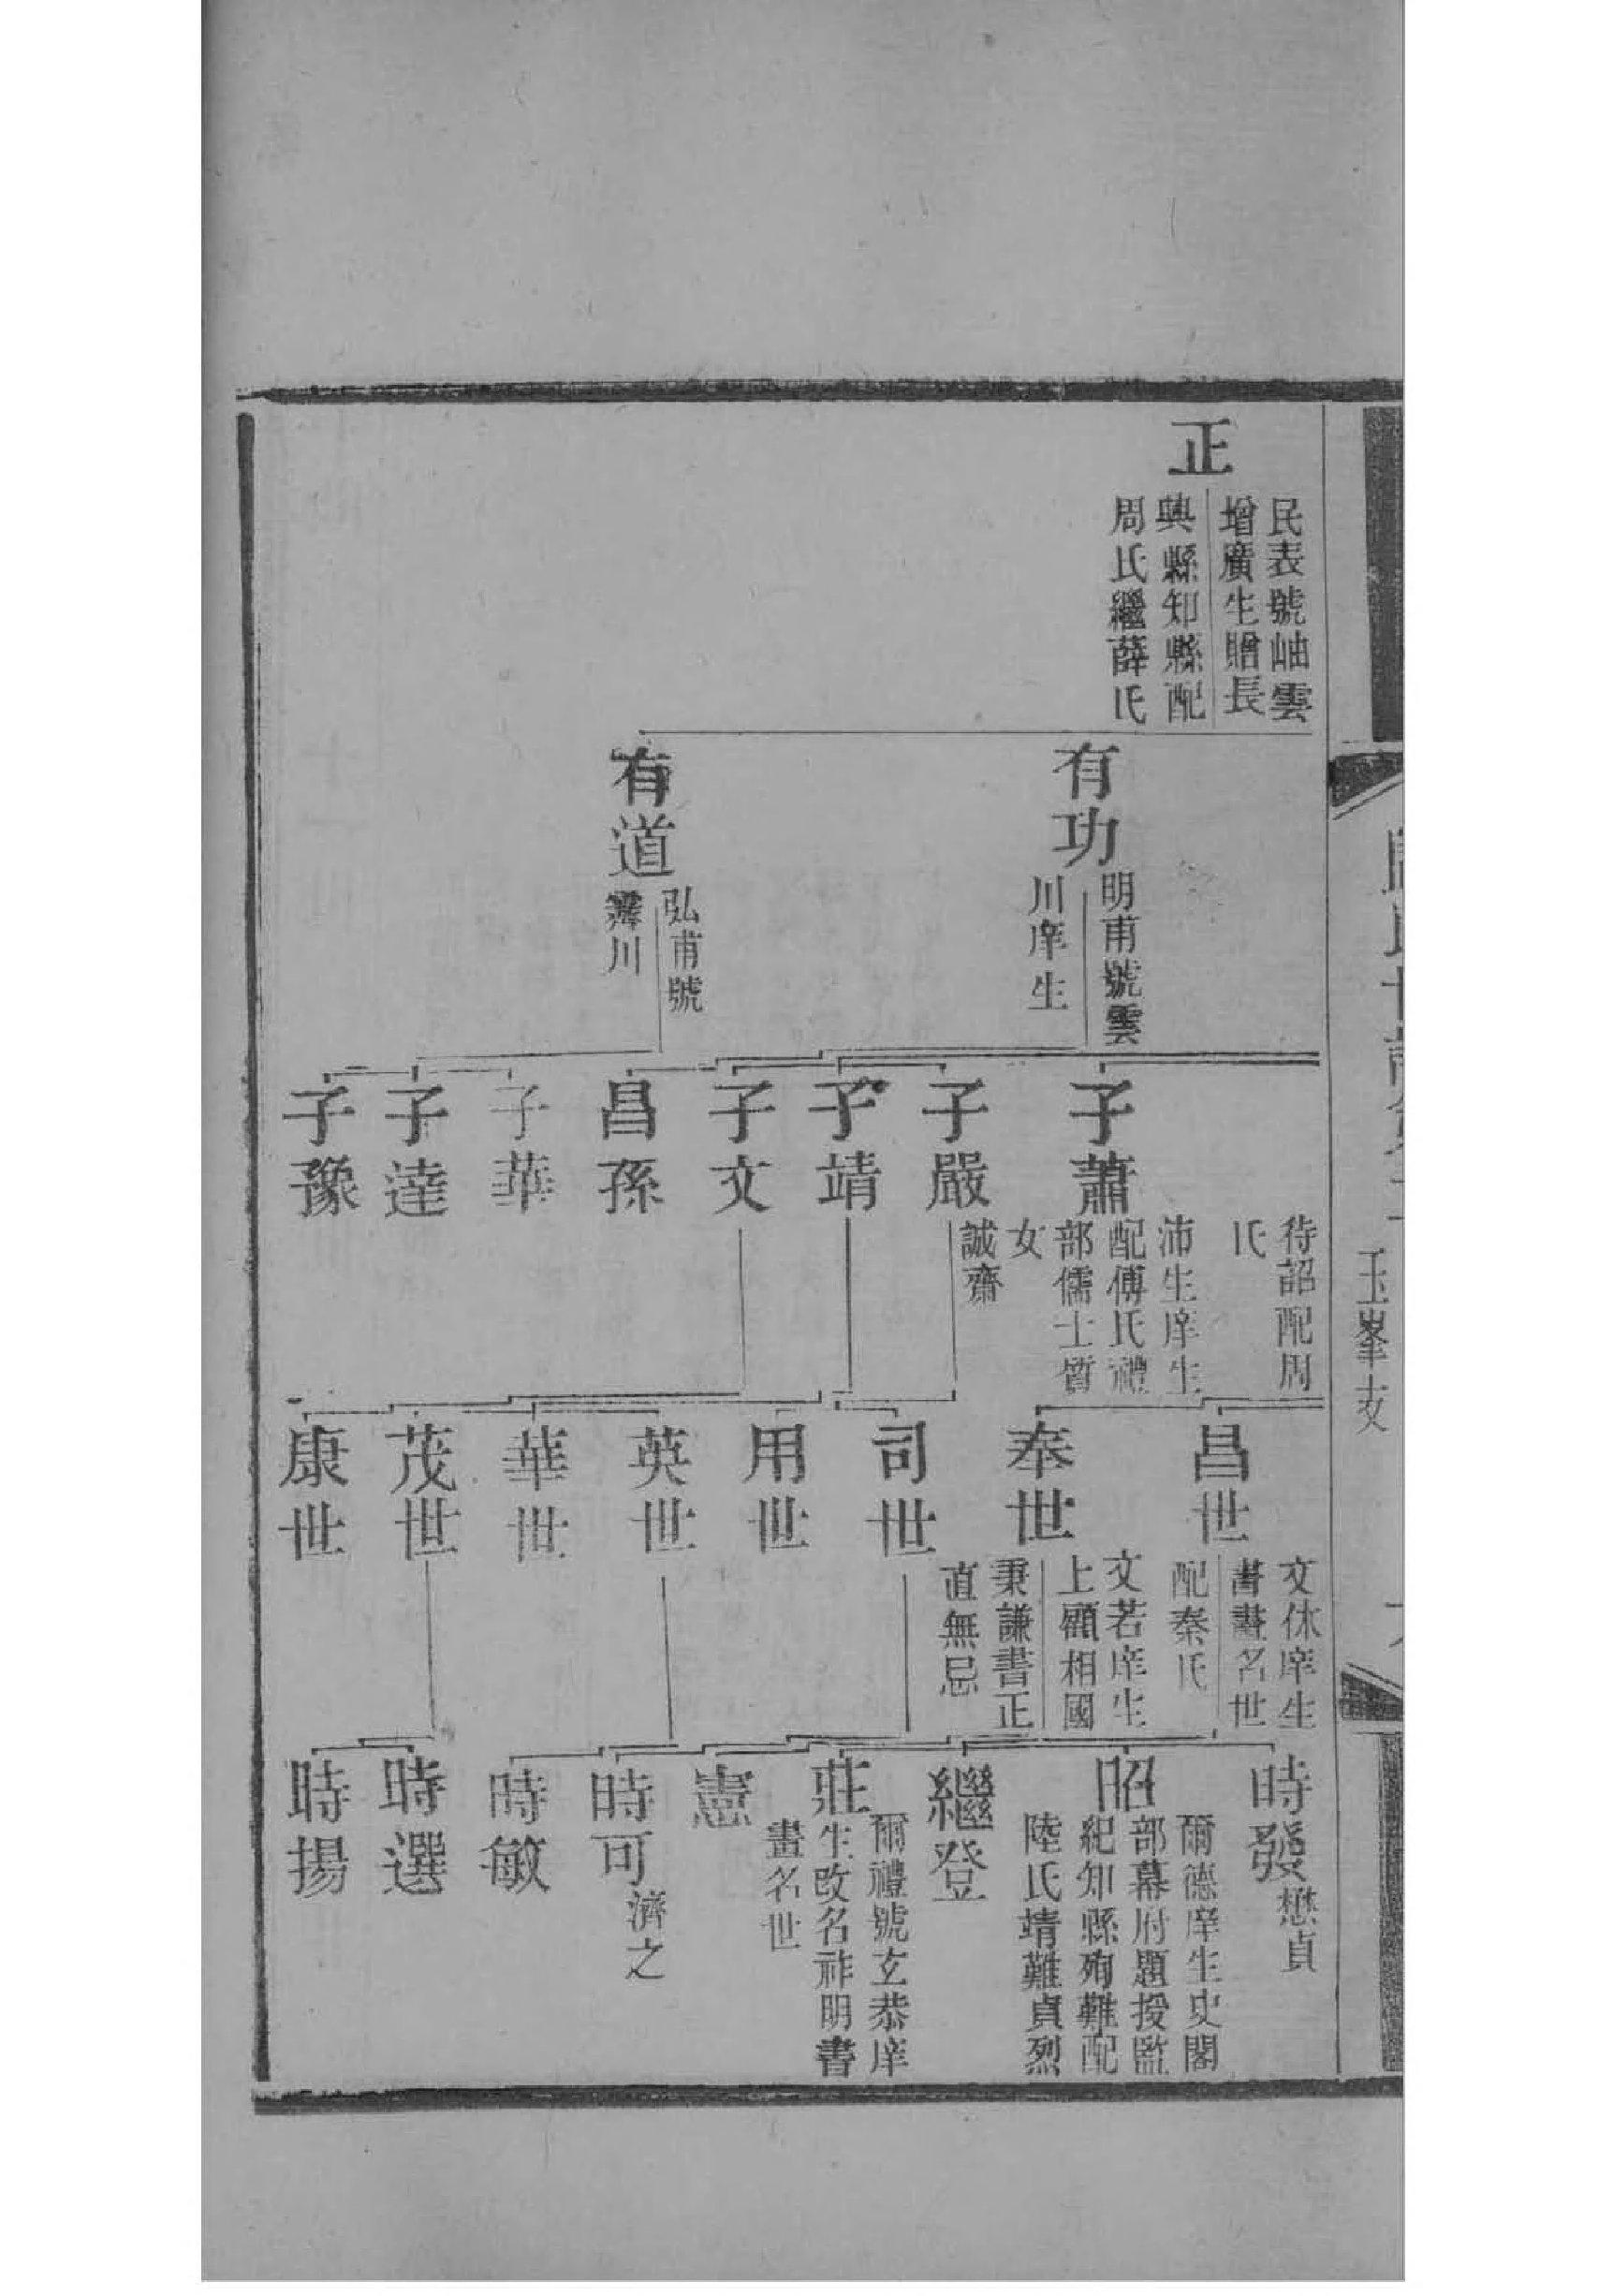 玉峯女
正
民表號岫雲
增廣生贈長
興縣知縣配
周氏繼薛氏
有功
明甫號雲
川庠生
有道
弘甫號
霽川
待詔配周
氏
子蕭
沛生庠生
配傅氏禮
部儒士質
女
子嚴
誠齋
子靖
子文
昌孫
子華
子達
子豫
昌世
文休庠生
書畫名世
配秦氏
奉世
文若庠生
上顧相國
秉謙書正
直無忌
司世
用世
英世
華世
茂世
康世
時發
懋貞
昭
爾德庠生史閣
部幕府題授監
紀知縣殉難配
陸氏靖難貞烈
繼登
莊
爾禮號玄恭庠
生改名祚明書
畫名世
憲
時可
濟之
時敏
時選
時揚